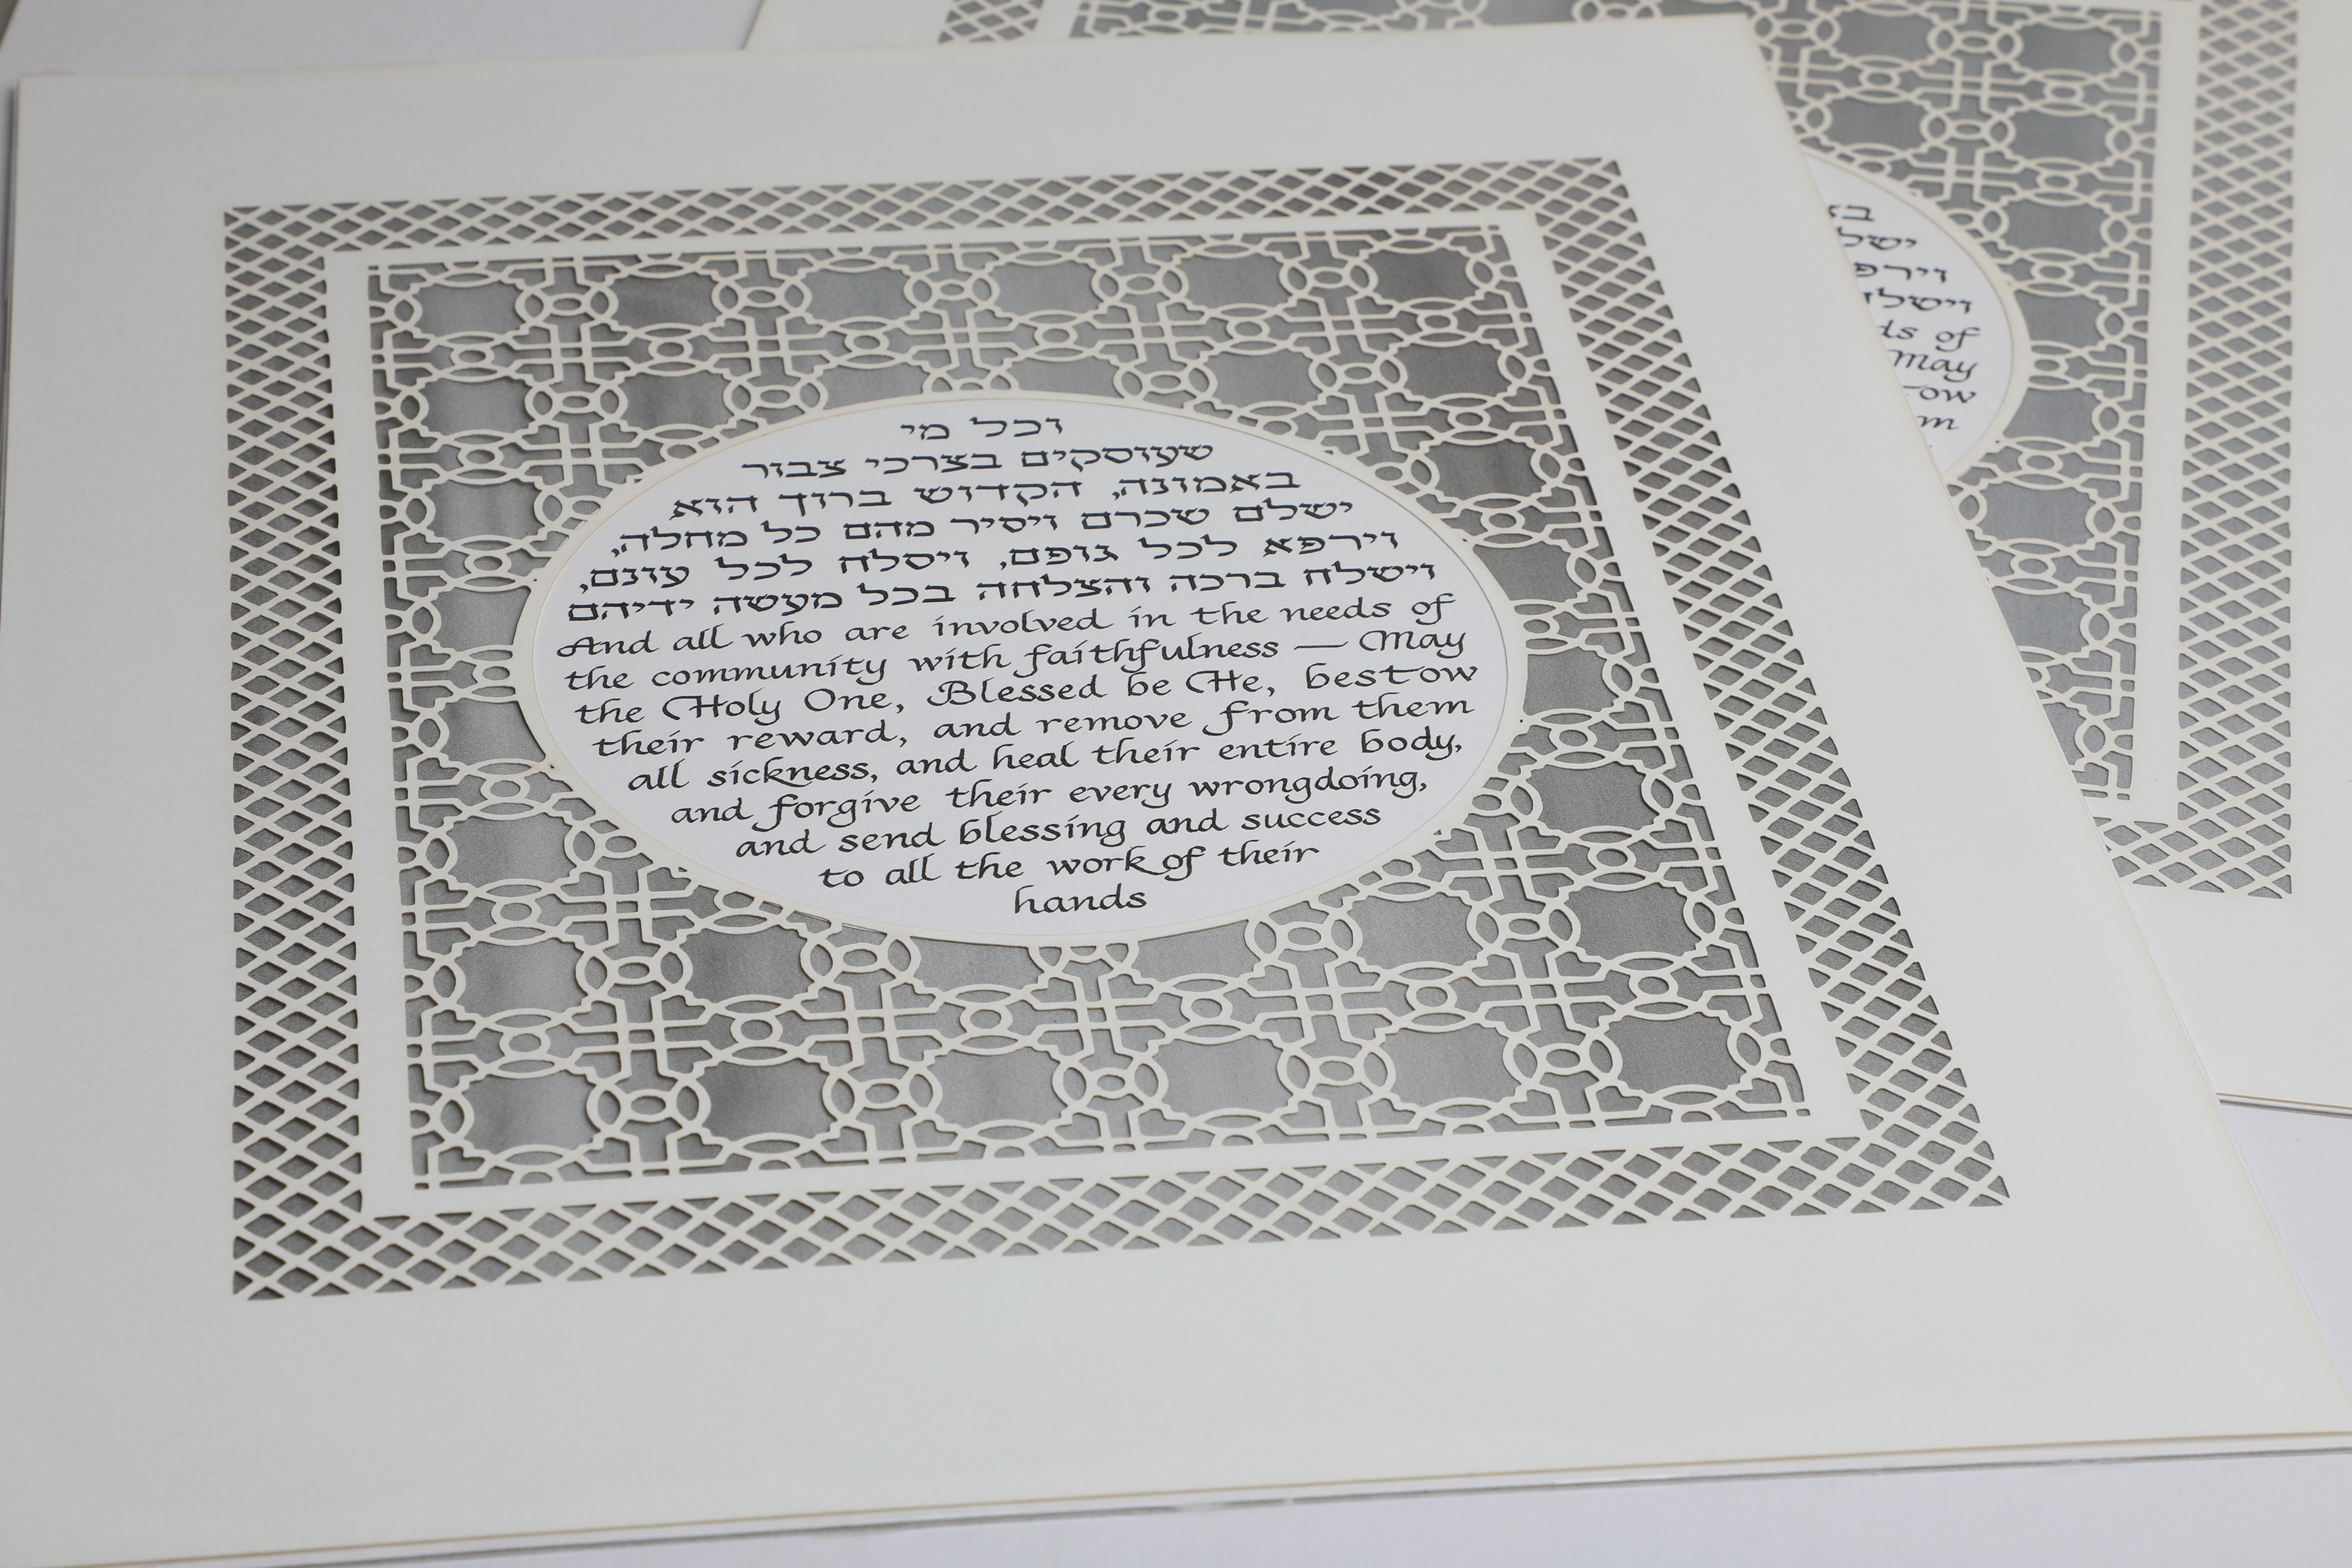 וכל מי
שעוסקים בצרכי צבור
באמונה, הקדוש ברוך הוא
ישלם שכרם ויסיר מהם כל מחלה,
וירפא לכל גופם, ויסלח לכל עונם,
וישלח ברכה והצלחה בכל מעשה ידיהם
And all who are involved in the needs of
the community with faithfulness — May
the Holy One, Blessed be He, bestow
their reward, and remove from them
all sickness, and heal their entire body,
and forgive their every wrongdoing,
and send blessing and success
to all the work of their
hands
of
May